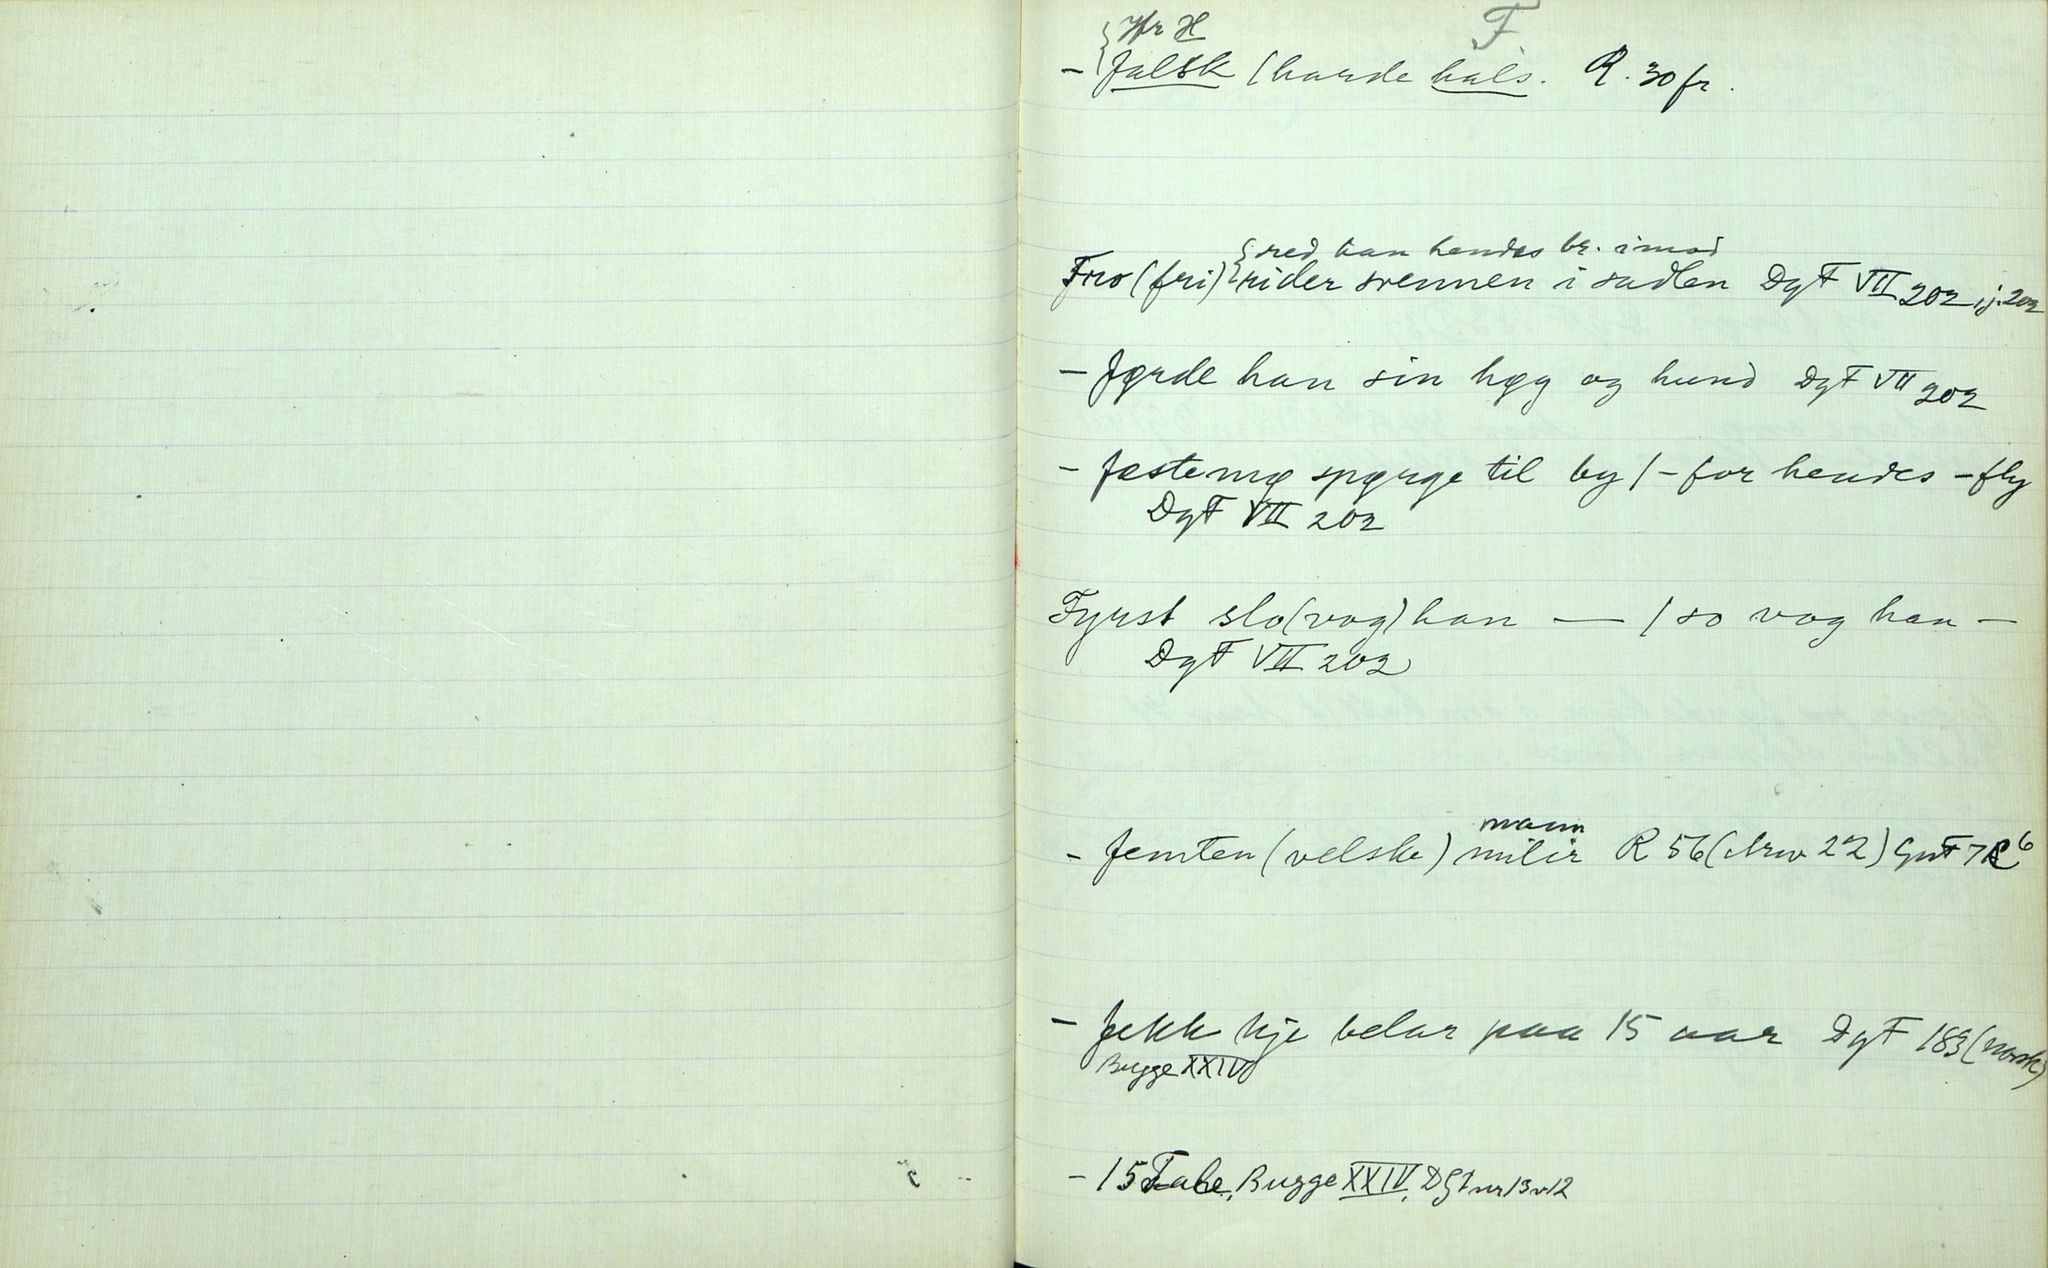 F
{ Jfr H
– falsk / harde hals. R. 30 fr.
{ red han hendes br. imod
Fro (fri) { rider svennen i sadlen DgF VII 202, j. 202
– førde han sin høg og hund DgF VII 202
– festemø spørge til by / – for hendes – fly
DgF VII 202
Fyrst slo (vog) han — / so vog han –
DgF VII 202
mann
– femten (velske) milir R 56 (Arw 22) GnF 7 R 6
– fekk kje belar paa 15 aar DgF 183 (norsk)
Bugge XXIV
– 15 Bugge XXIV, DGF nr 13 v 12